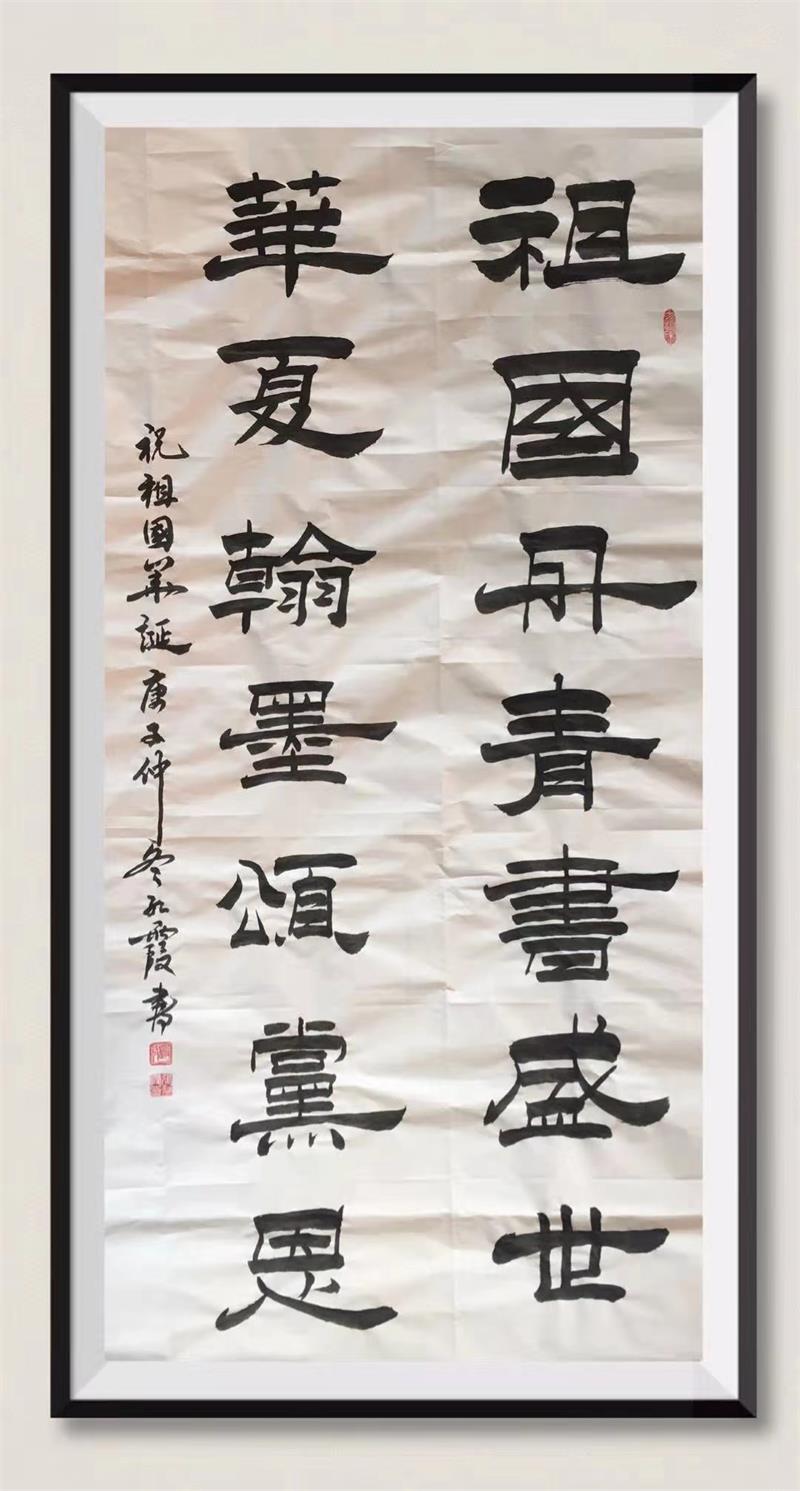 祖國丹青書盛世
華夏翰墨頌黨恩
祝祖國華誕庚子仲冬紅霞書